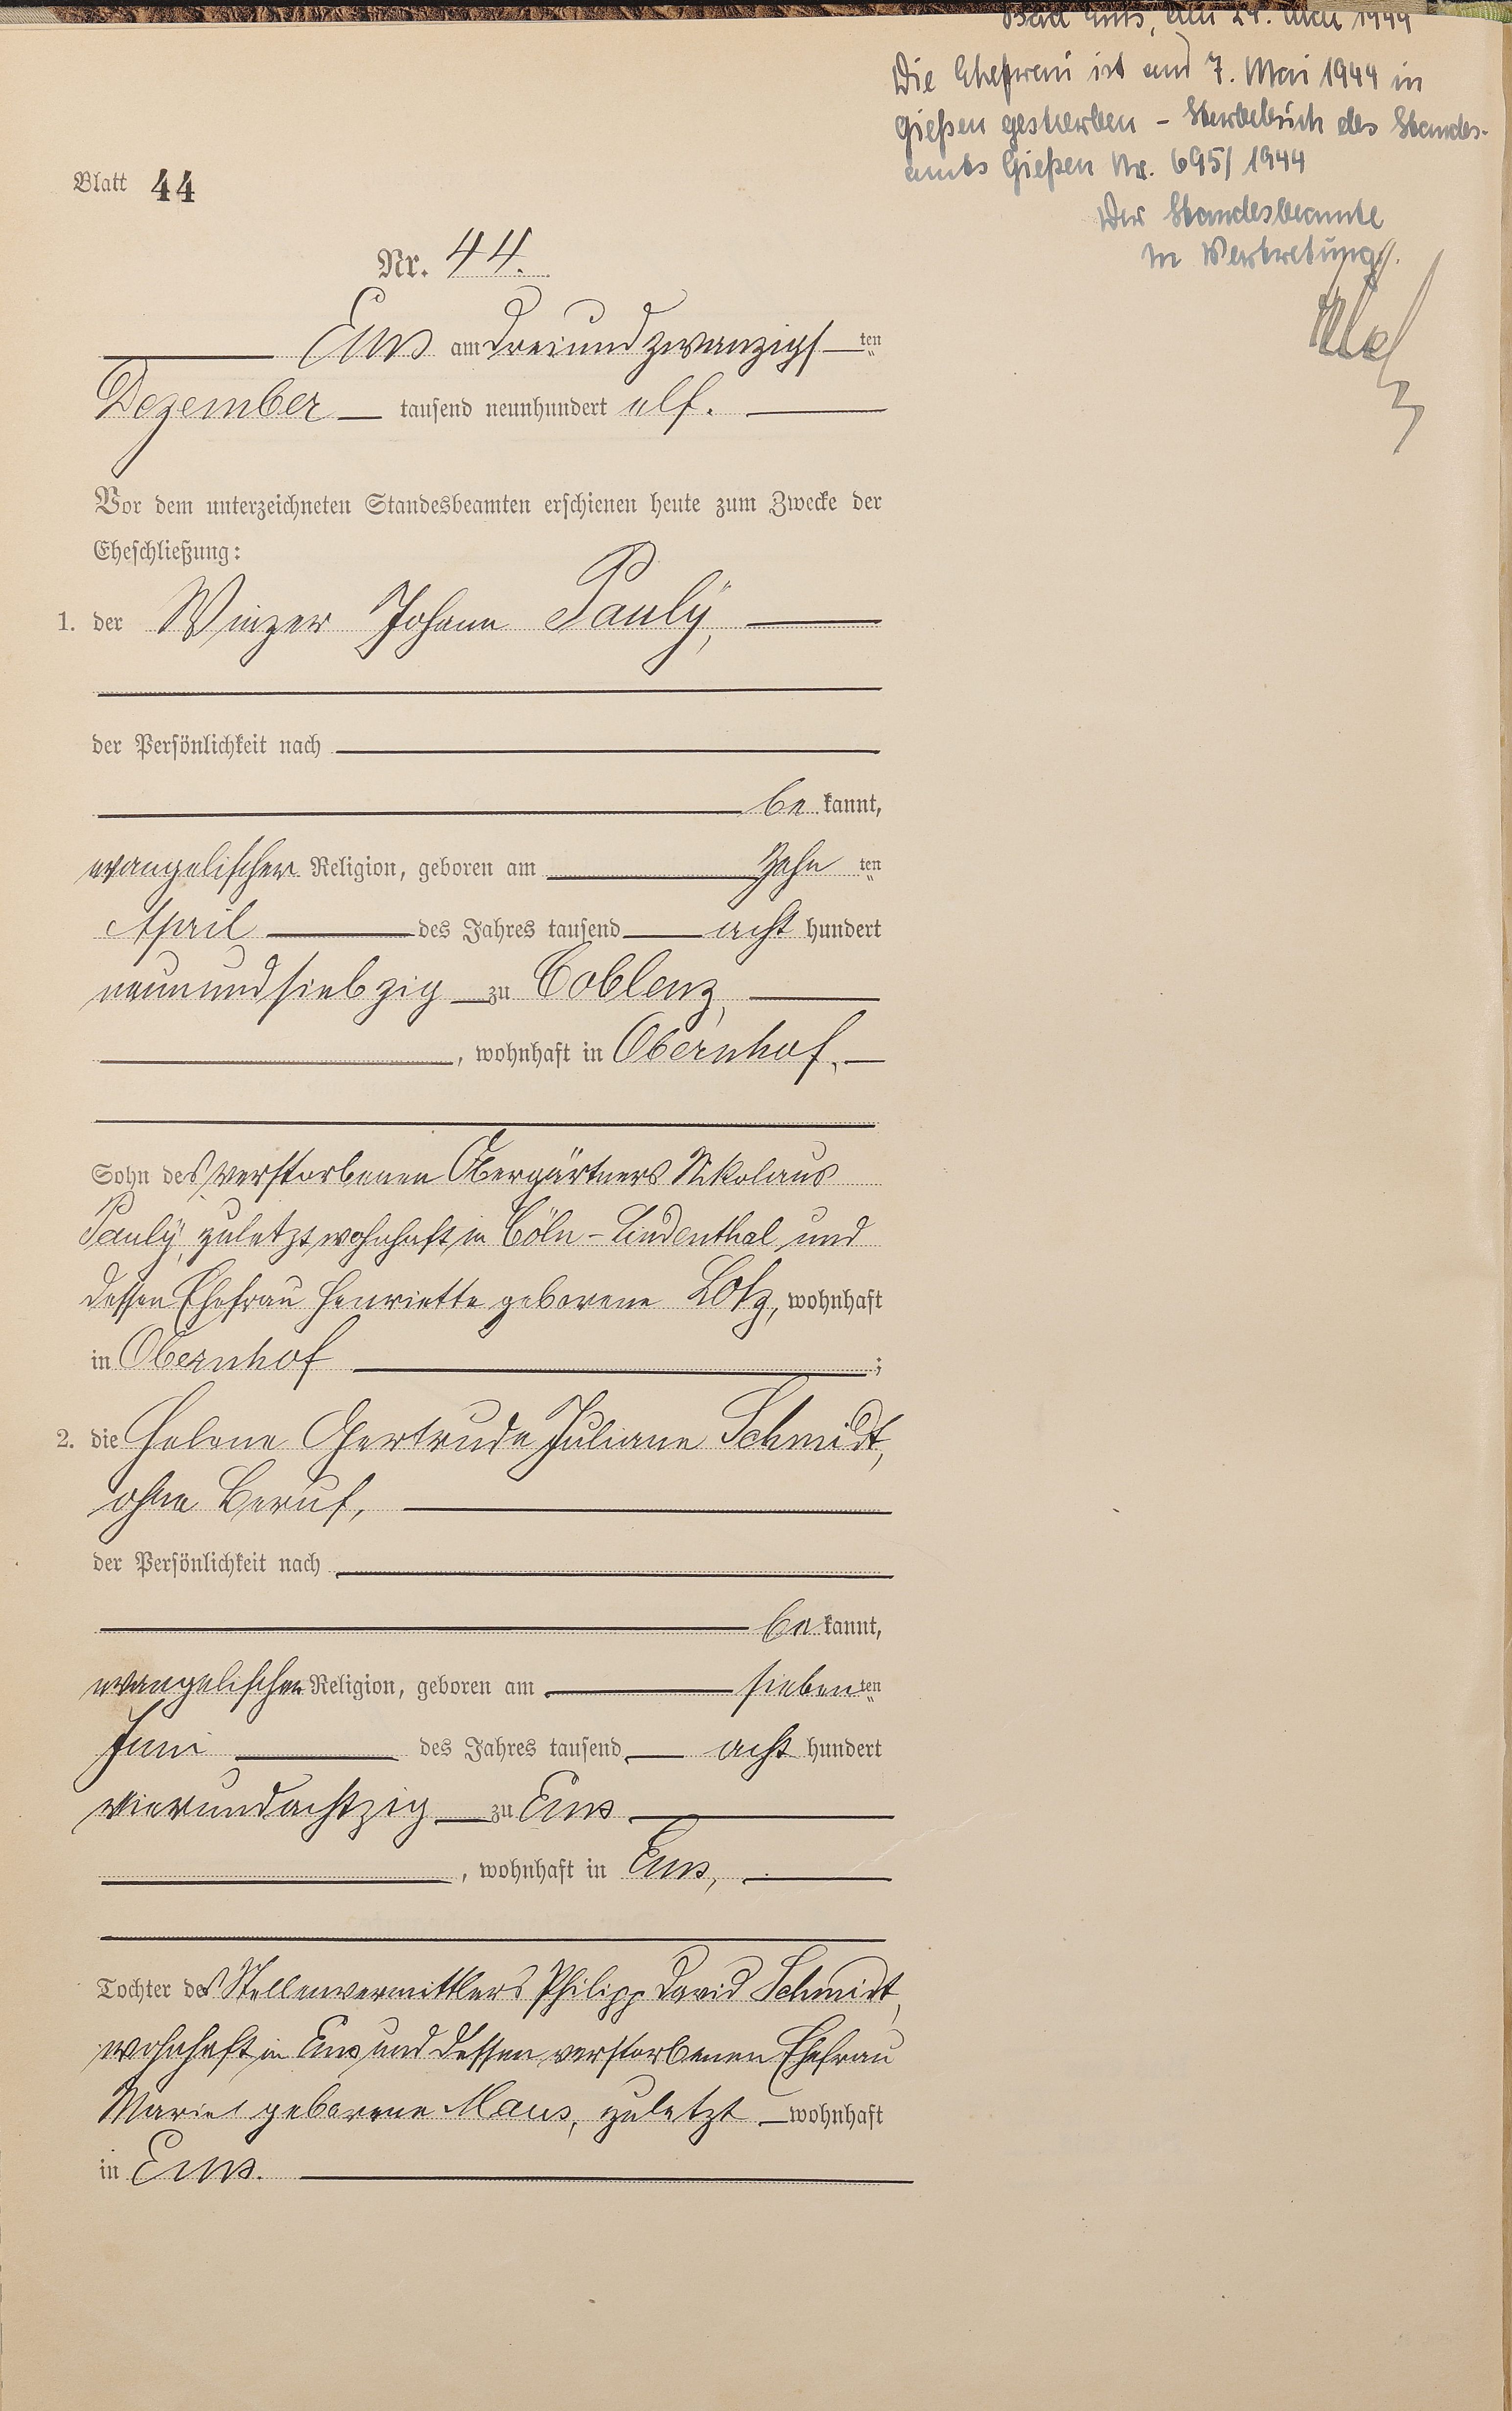 Bad Ems, den 24. Mai 1944
Die Ehefrau ist am 7. Mai 1944 in
Gießen gestorben – Sterbebuch des Standes-
amts Gießen Nr. 695/1944
Der Standesbeamte
In Vertretung
Blatt 44
Nr. 44.
Ems am dreiundzwanzigsten
Dezember tausend neunhundert elf.
Vor dem unterzeichneten Standesbeamten erschienen heute zum Zwecke der
Eheschließung:
1. der Winzer Johann Pauly,
der Persönlichkeit nach
bekannt,
evangelischer Religion, geboren am zehnten
April des Jahres tausend acht hundert
neunundsiebzig zu Coblenz,
, wohnhaft in Obernhof,
Sohn des verstorbenen Obergärtners Nikolaus
Pauly, zuletzt wohnhaft in Cöln-Lindenthal und
dessen Ehefrau Henriette geborene Lotz, wohnhaft
in Obernhof ;
2. die Helene Gertrude Juliane Schmidt,
ohne Beruf,
der Persönlichkeit nach
bekannt,
evangelischer Religion, geboren am siebenten
Juni des Jahres tausend acht hundert
vierundachtzig zu Ems
, wohnhaft in Ems,
Tochter des Stellenvermittlers Philipp David Schmidt,
wohnhaft in Ems und dessen verstorbenen Ehefrau
Marie geborene Maus, zuletzt wohnhaft
in Ems.